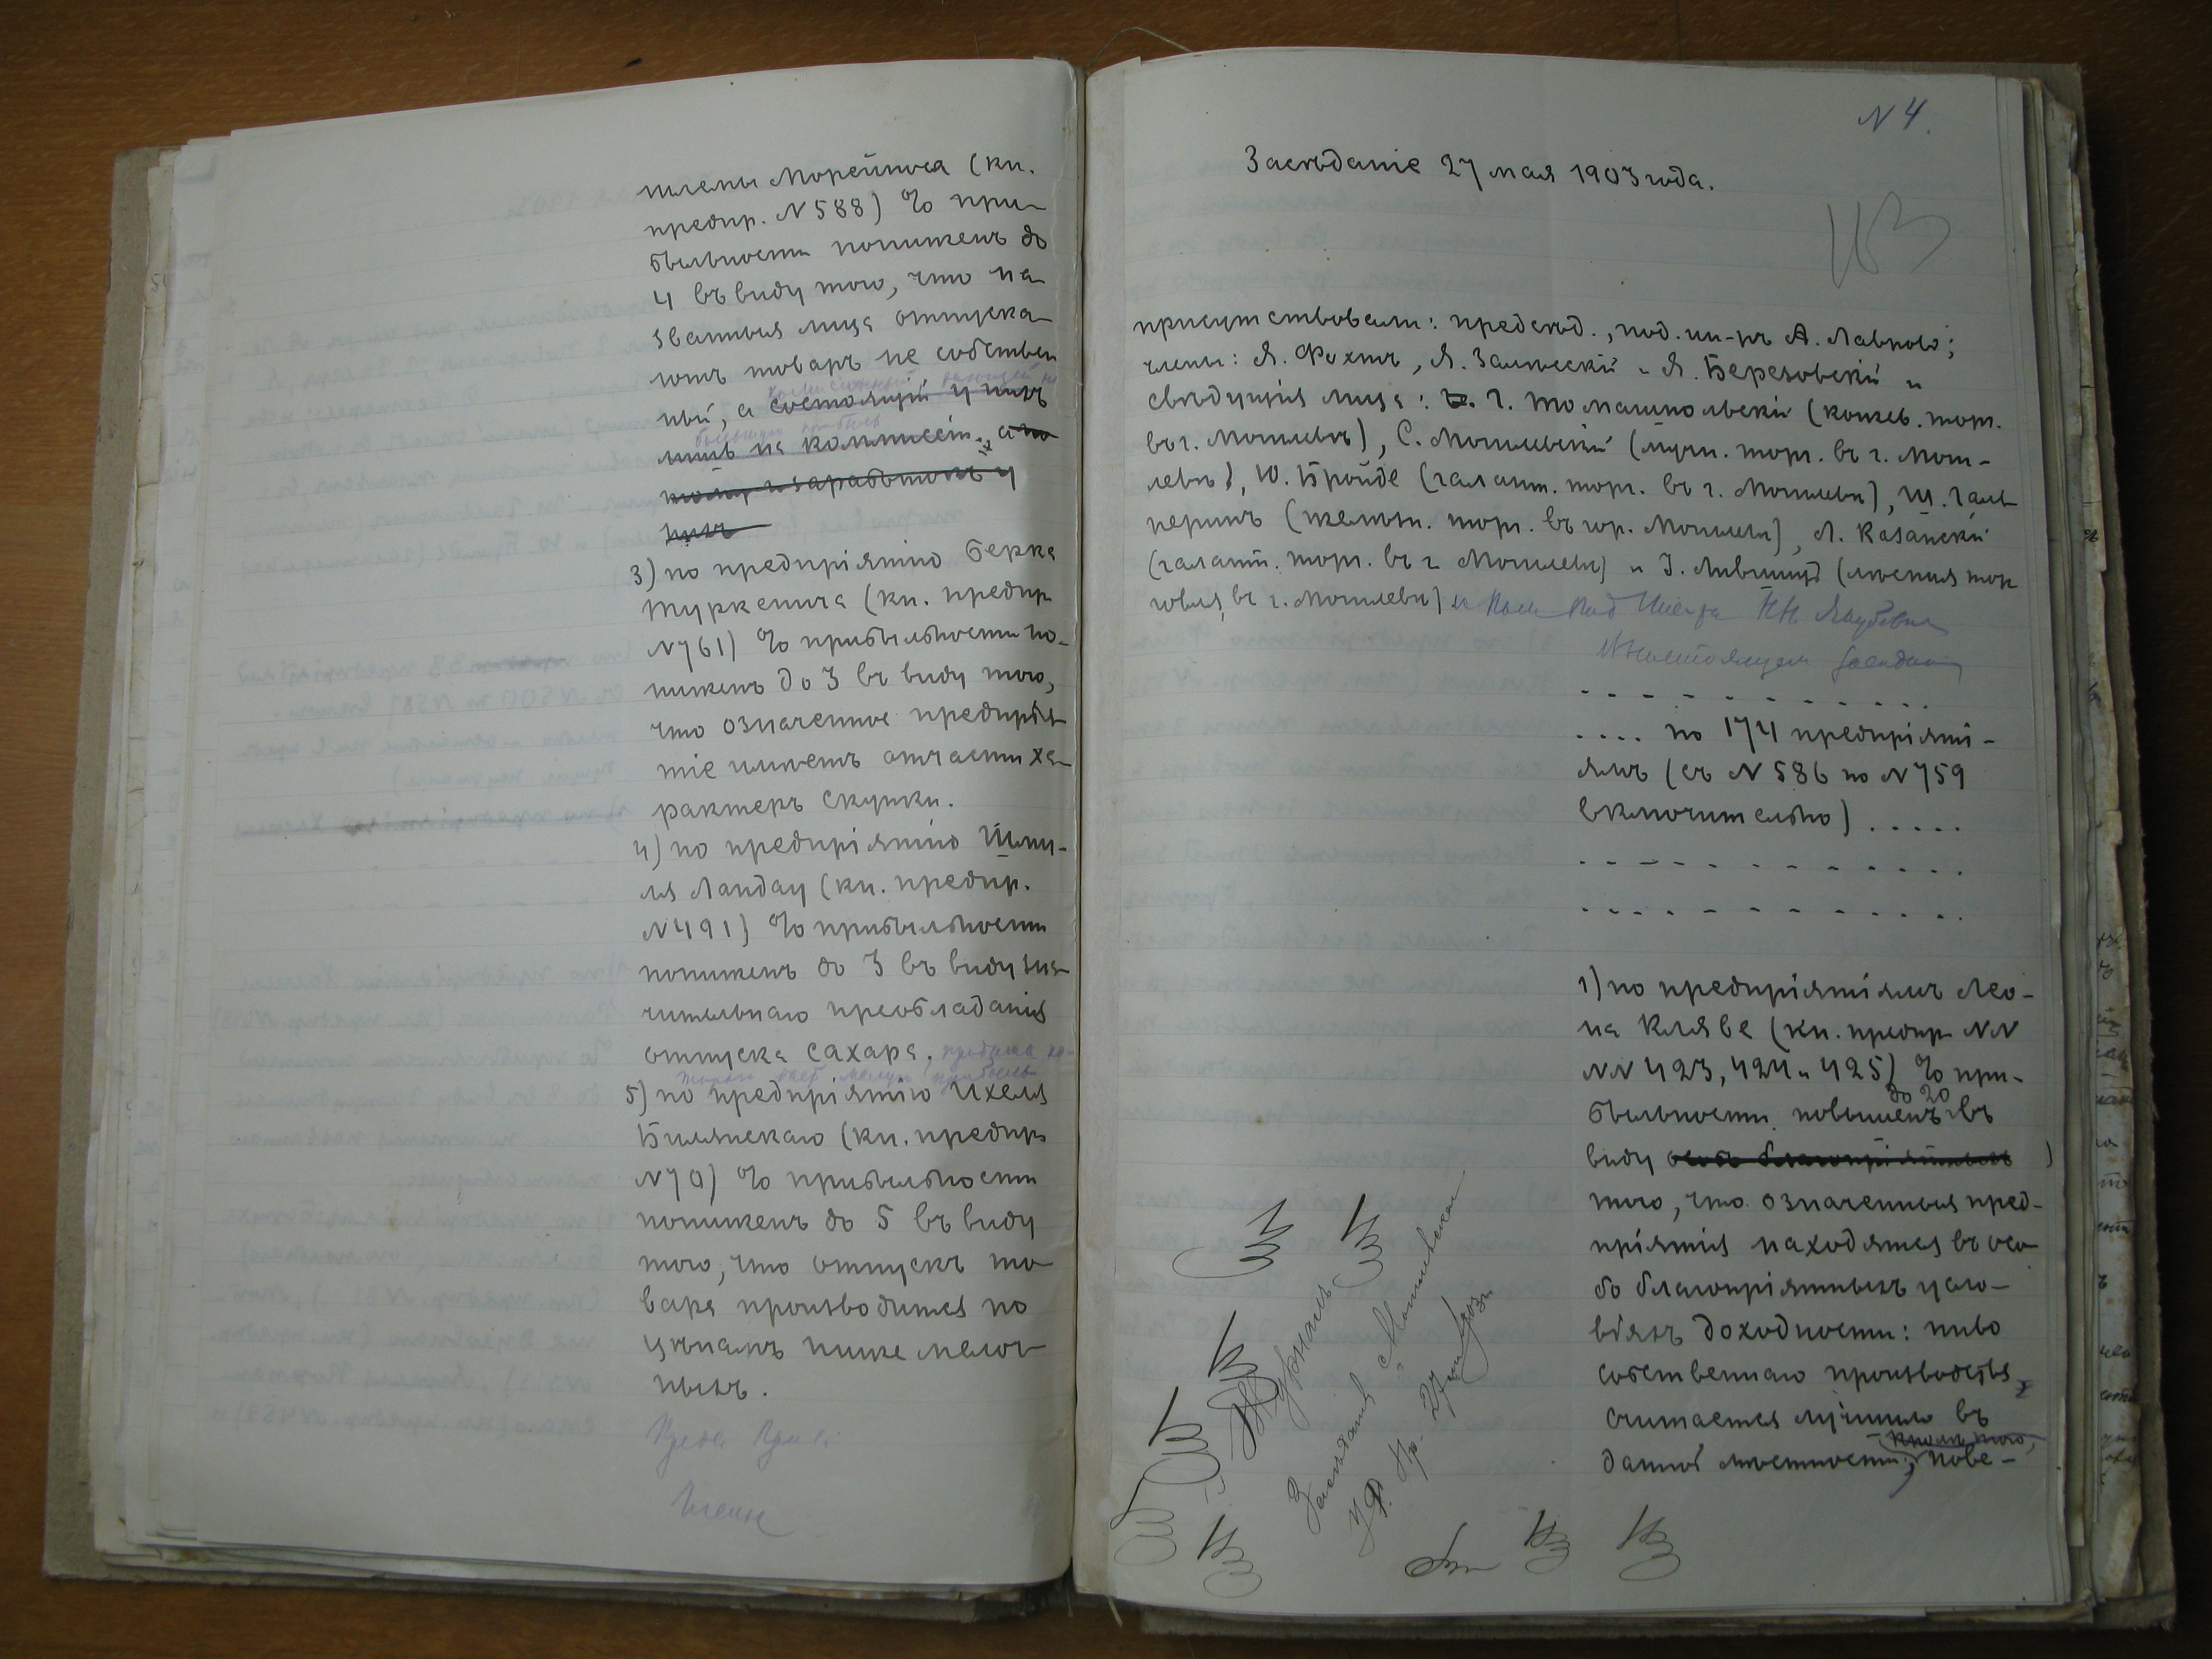 шлемы Морейноса (кн.
предпр. N 588) % при-
быльности пониженъ до
4 въ виду того, что на-
званныя лица отпуска-
ютъ товаръ не собствен
ный, а состоящій у нихъ
лишь на коммиссіи, а по
тому и заработокъ у
нихъ
3) по предпріятію Берка
Туркенича (кн. предпр
N 761) % прибыльности по-
ниженъ до 3 въ виду того,
что означенное предпрія-
тіе имѣетъ отчасти ха-
рактеръ скупки.
4) по предпріятію Шму-
ля Ландау (кн. предпр.
N 491) % прибыльности
пониженъ до 3 въ виду зна-
чительнаго преобладанія
отпуска сахара.
5) по предпріятію Ихеля
Билянскаго (кн. предпр
N 70) % прибыльности
пониженъ до 5 въ виду
того, что отпускъ то
вара производится по
цѣнамъ ниже мелоч-
ныхъ.
Члены
N 4.
Засѣданіе 27 мая 1903 года.
присутствовали: предсѣд., под. ин-ръ А. Лавновъ;
члены: Я. Фохтъ, Я. Залѣсскій и Я. Березовскій и
свѣдущія лица: Г. Томашпольскій (кожев. торг.
въ г. Могилевѣ), С. Могилевскій (мучн. торг. въ г. Моги-
левѣ), Ю. Бройде (галант. торг. въ г. Могилевѣ), Ш. Галь
перинъ (желѣзн. торг. въ гор. Могилевѣ), Л. Казанскій
(галант. торг. въ г Могилевѣ) и І. Лившицъ (лѣсная тор
говля, въ г. Могилевѣ) и
- - - - - - - - - - - -
.... по 174 предпріяті-
ямъ (съ N 586 по N 759
включительно) .....
- - - - - - - - - - - -
- - - - - - - - - - - -
1) по предпріятіямъ Лео-
на Кляве (кн. предпр NN
NN 423, 424 и 425) % при-
до 20
быльности повышенъ въ
виду особо благопріятныхъ
того, что означенныя пред-
пріятія находятся въ осо
бо благопріятныхъ усло-
віяхъ доходности: пиво
собственнаго производства,
считается лучшимъ въ
кромѣ того,
данной мѣстности; пове-
Журналъ
Засѣданія Могилевскаго
27 мая 1903 г.